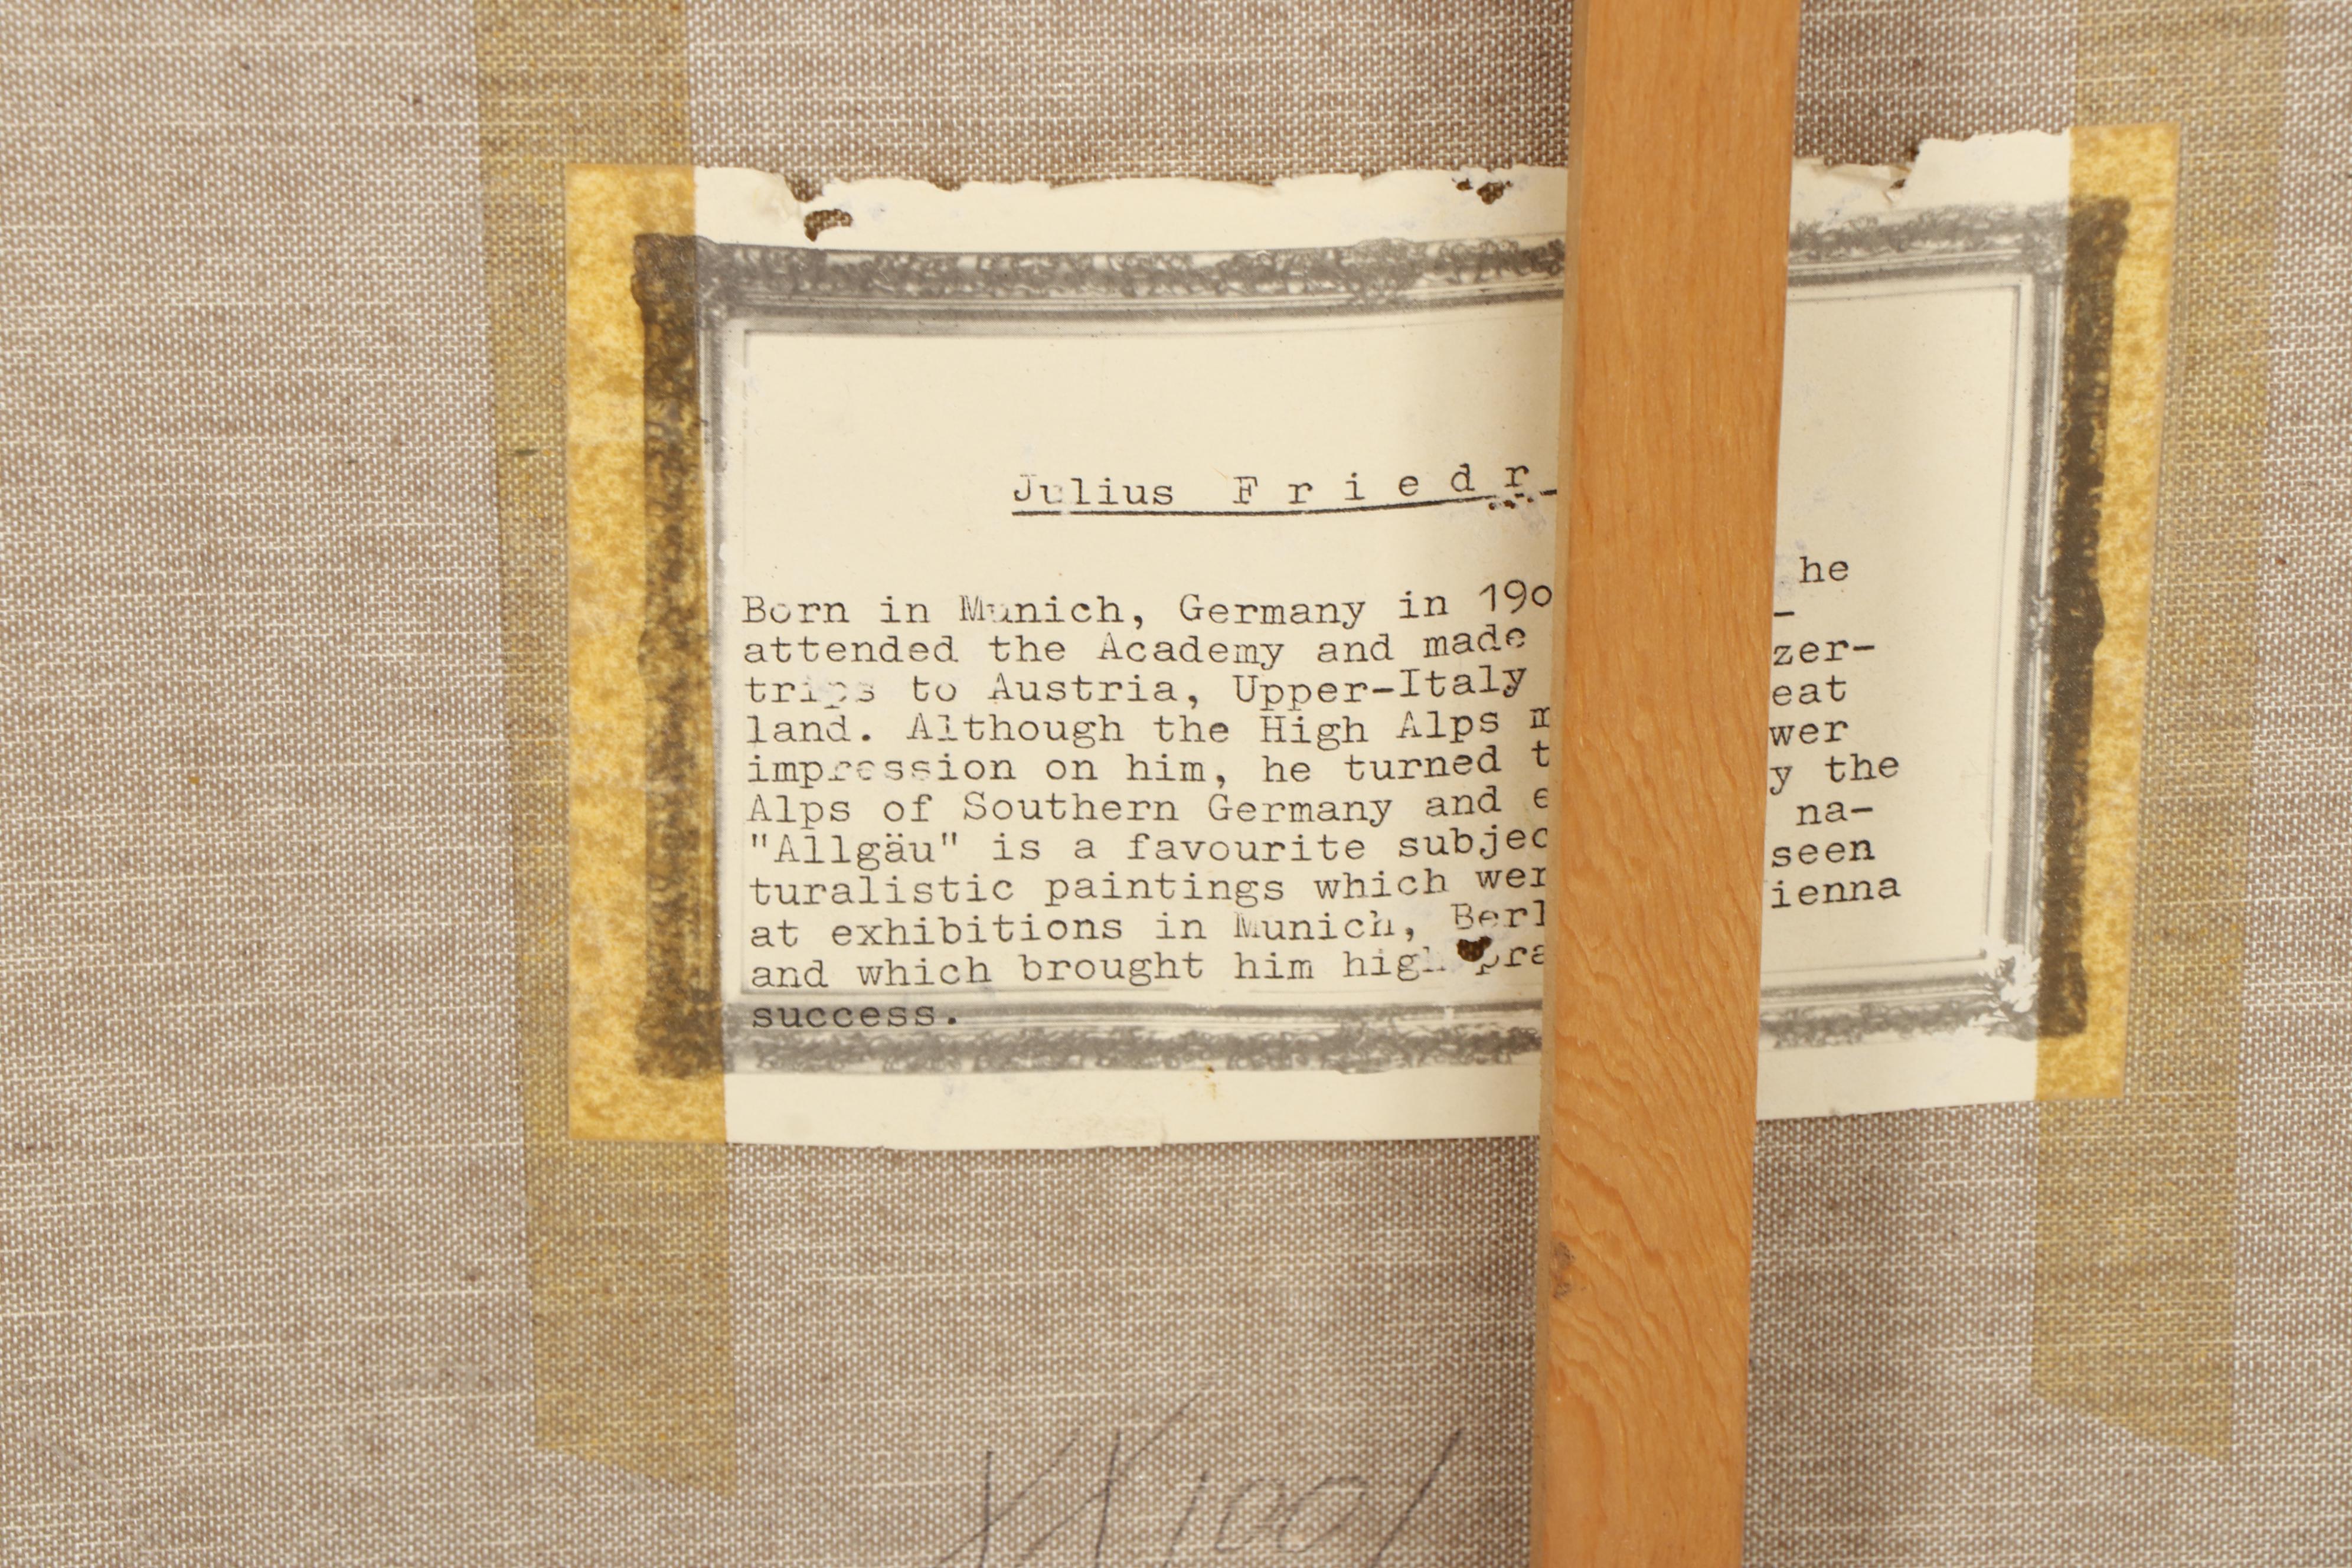 Julius F r i e d r
Born in Munich, Germany in 190 he
attended the Academy and made -
trips to Austria, Upper-Italy zer-
land. Although the High Alps m eat
impression on him, he turned t wer
Alps of Southern Germany and e y the
"Allgäu" is a favourite subjec na-
turalistic paintings which wer seen
at exhibitions in Munich, Berl ienna
and which brought him high pra
success.